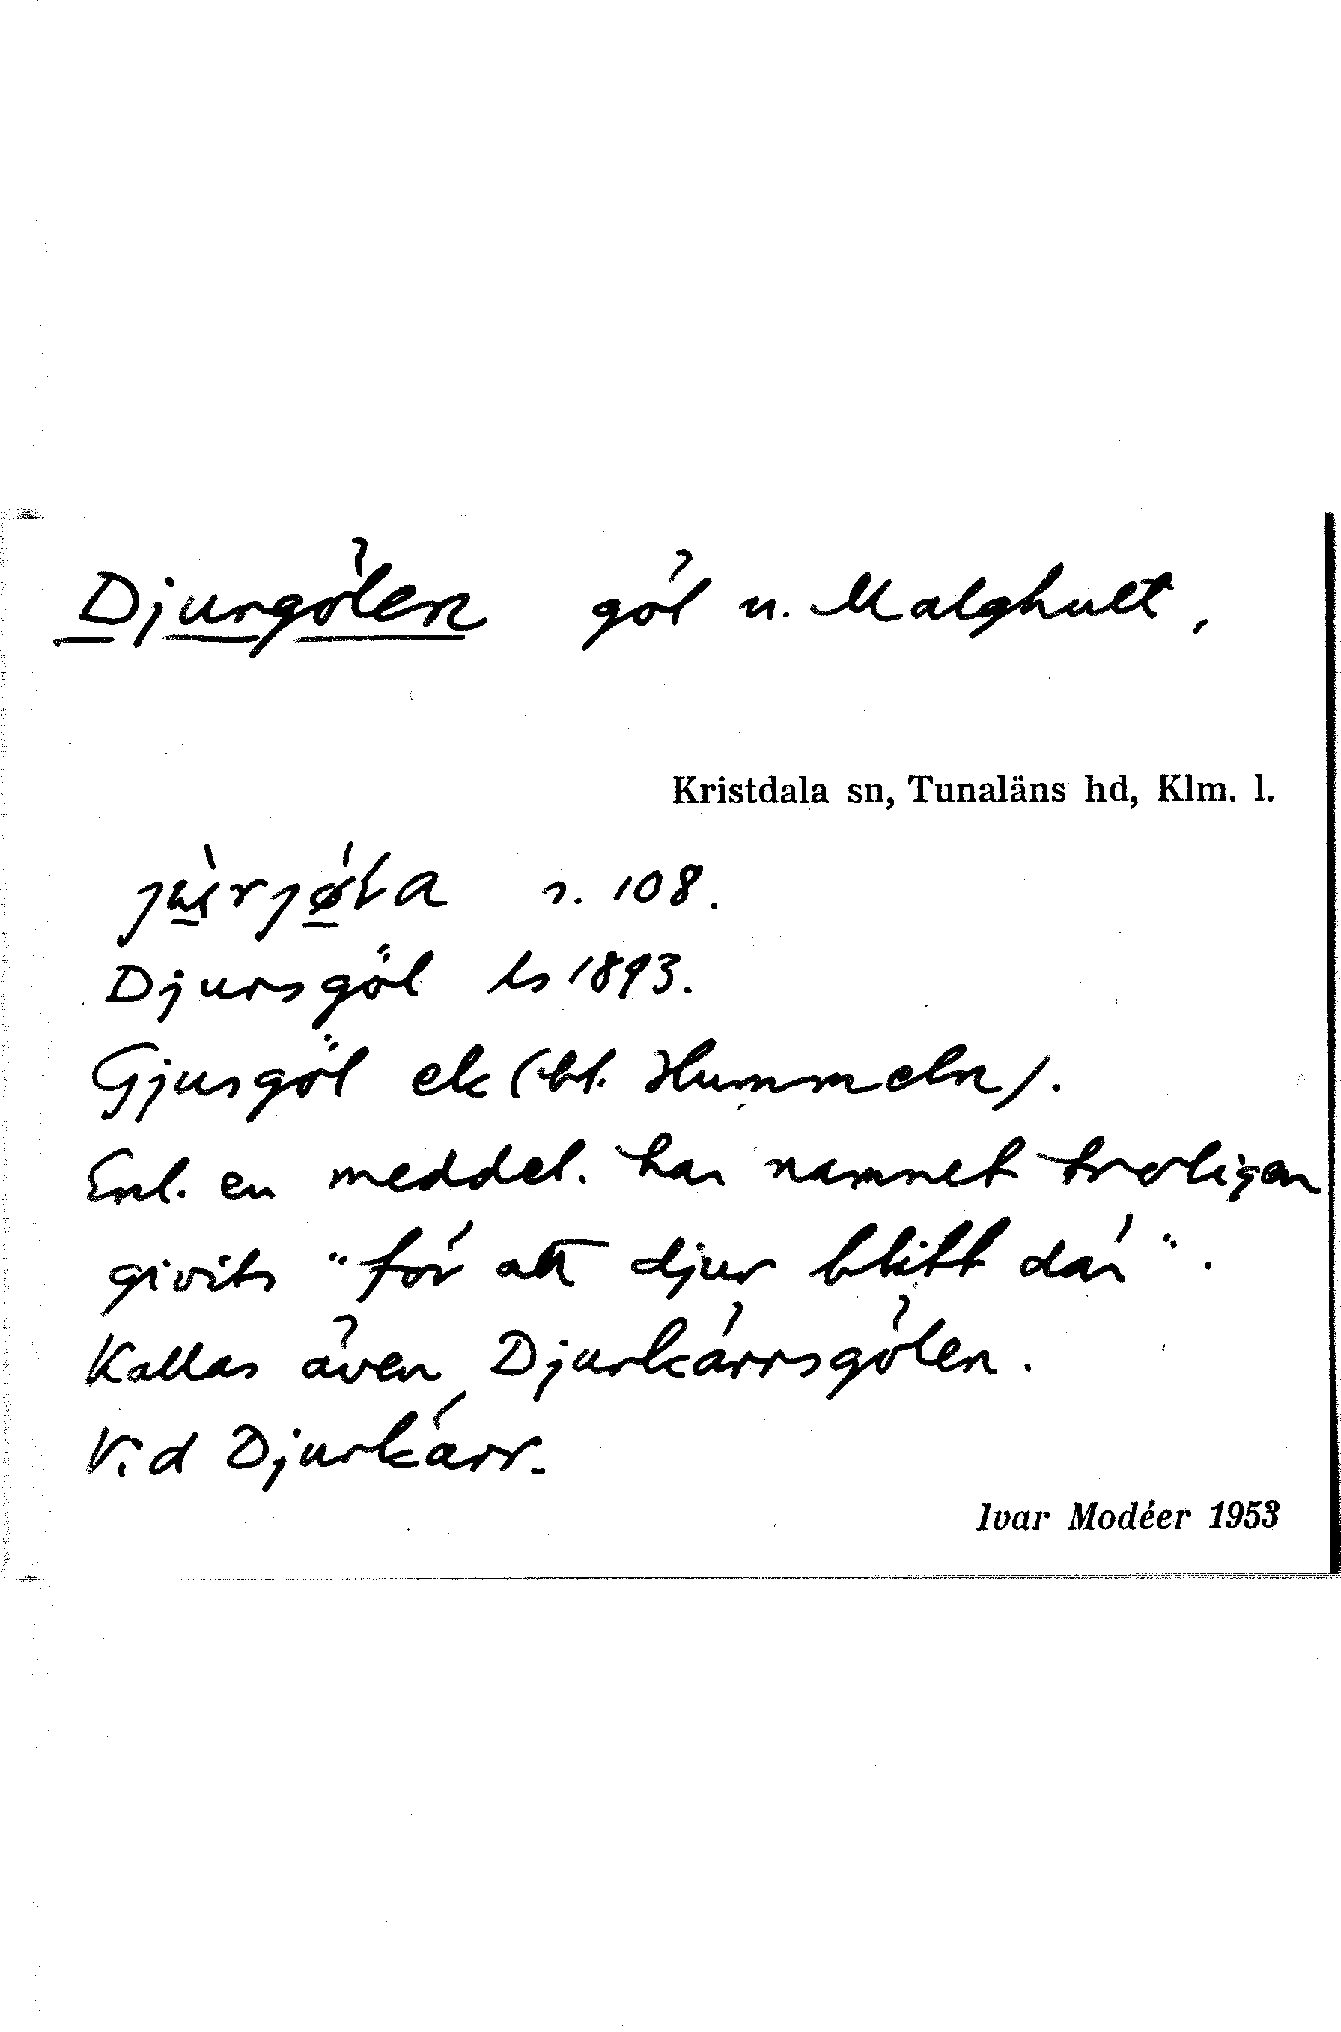 Djurgölen göl u. Malghult,
Kristdala sn, Tunaläns hd, Klm. l.
s. 108.
Djursgöl ls 1893.
Gjusgöl ek (bl. Hummeln).
Enl. en meddel. har namnet troligen
givits "för att djur blitt där".
Kallas även Djurkärrsgölen.
Vid Djurkärr.
Ivar Modéer 1953